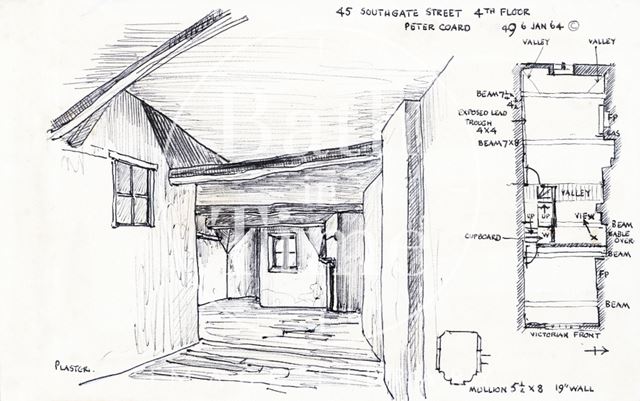 45 SOUTHGATE STREET 4TH FLOOR
PETER COARD 49 6 JAN 64 ©
VALLEY VALLEY
BEAM 7½
4½
EXPOSED LEAD
TROUGH
4X4
BEAM 7X8
FP
GAS
VALLEY
UP UP VIEW
W
CUPBOARD
BEAM
GABLE
OVER
BEAM
FP
BEAM
VICTORIAN FRONT
PLASTER.
MULLION 5½ X 8 19" WALL
Bath
in
Time